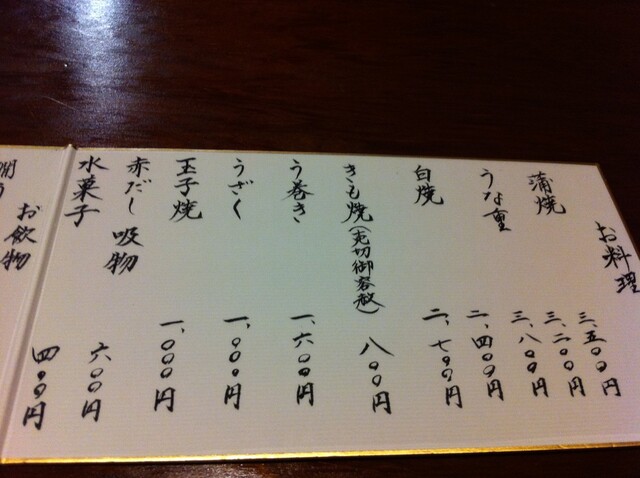 お料理
蒲焼 三、五〇〇円
三、二〇〇円
うな重 三、八〇〇円
二、四〇〇円
白焼 二、七〇〇円
きも焼(売切御容赦) 八〇〇円
う巻き 一、六〇〇円
うざく 一、〇〇〇円
玉子焼 一、〇〇〇円
赤だし 吸物 六〇〇円
水菓子 四〇〇円
お飲物